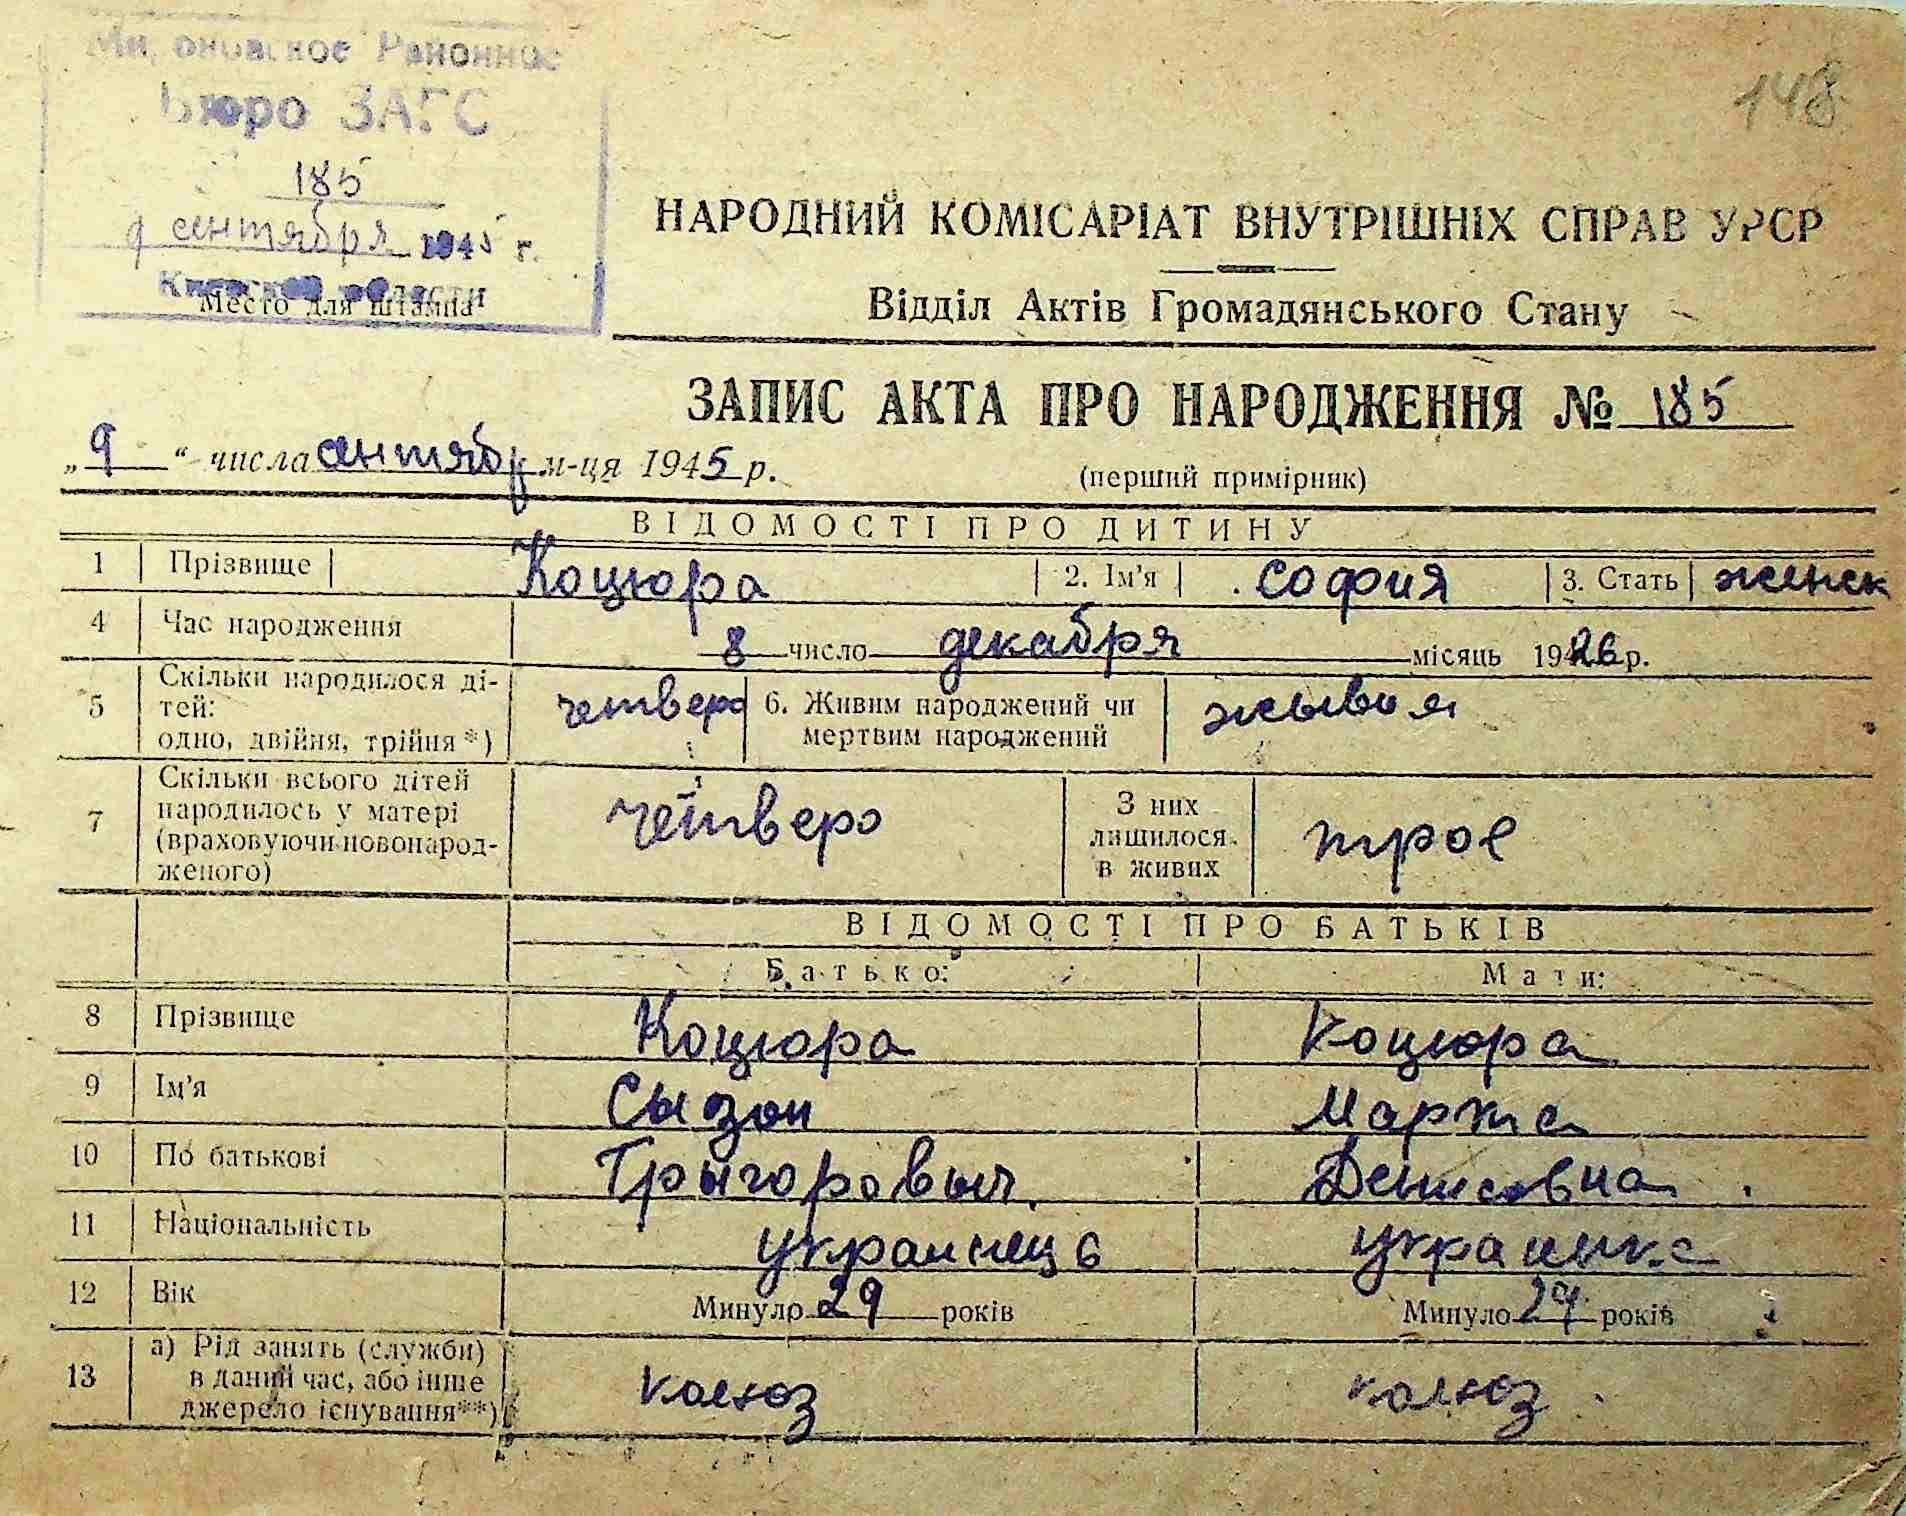 148
Районное
Бюро ЗАГС
185
9 сентября 1945 г.
Киевской области
Место для штампа
НАРОДНИЙ КОМІСАРІАТ ВНУТРІШНІХ СПРАВ УРСР
Відділ Актів Громадянського Стану
ЗАПИС АКТА ПРО НАРОДЖЕННЯ № 185
„9“ числа сентябр м-ця 1945 р.
(перший примірник)
ВІДОМОСТІ ПРО ДИТИНУ
1 Прізвище Коцюра 2. Ім'я София 3. Стать женск
4 Час народження 8 число декабря місяць 1926 р.
5 Скільки народилося ді-
тей:
одно, двійня, трійня *) четверо 6. Живим народжений чи
мертвим народжений
7 Скільки всього дітей
народилось у матері
(враховуючи новонарод-
женого) четверо З них
лишилося
в живих трое
ВІДОМОСТІ ПРО БАТЬКІВ
Батько: Мати:
8 Прізвище Коцюра Коцюра
9 Ім'я Сызон Марта
10 По батькові Грыгоровыч Денисовна
11 Національність украинец украинка
12 Вік Минуло 29 років Минуло 27 років
13 а) Рід занять (служби)
в даний час, або інше
джерело існування**) колхоз колхоз